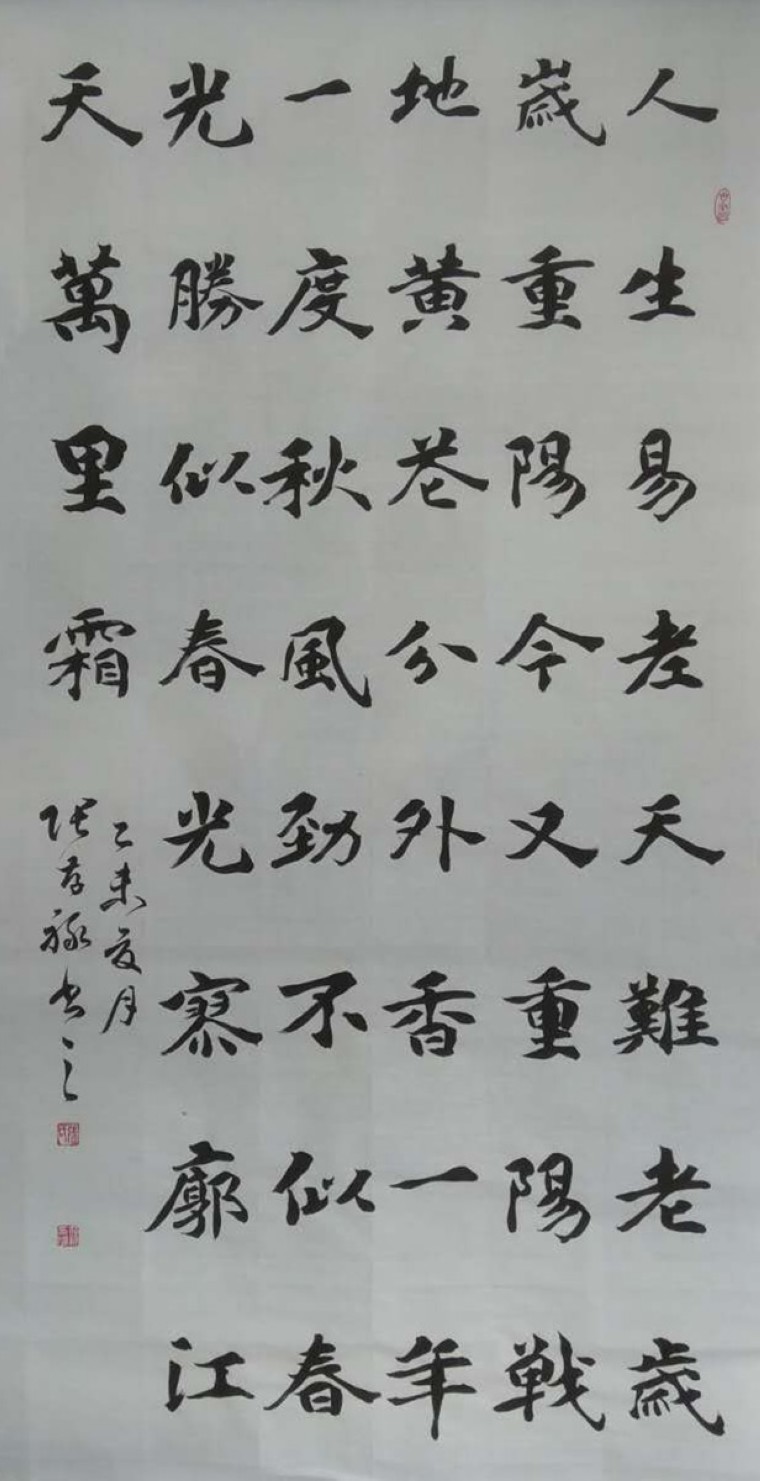 人生易老天難老歲
歲重陽今又重陽戰
地黄花分外香一年
一度秋風勁不似春
光勝似春光寥廓江
天萬里霜
乙未夏月
张存禄书之